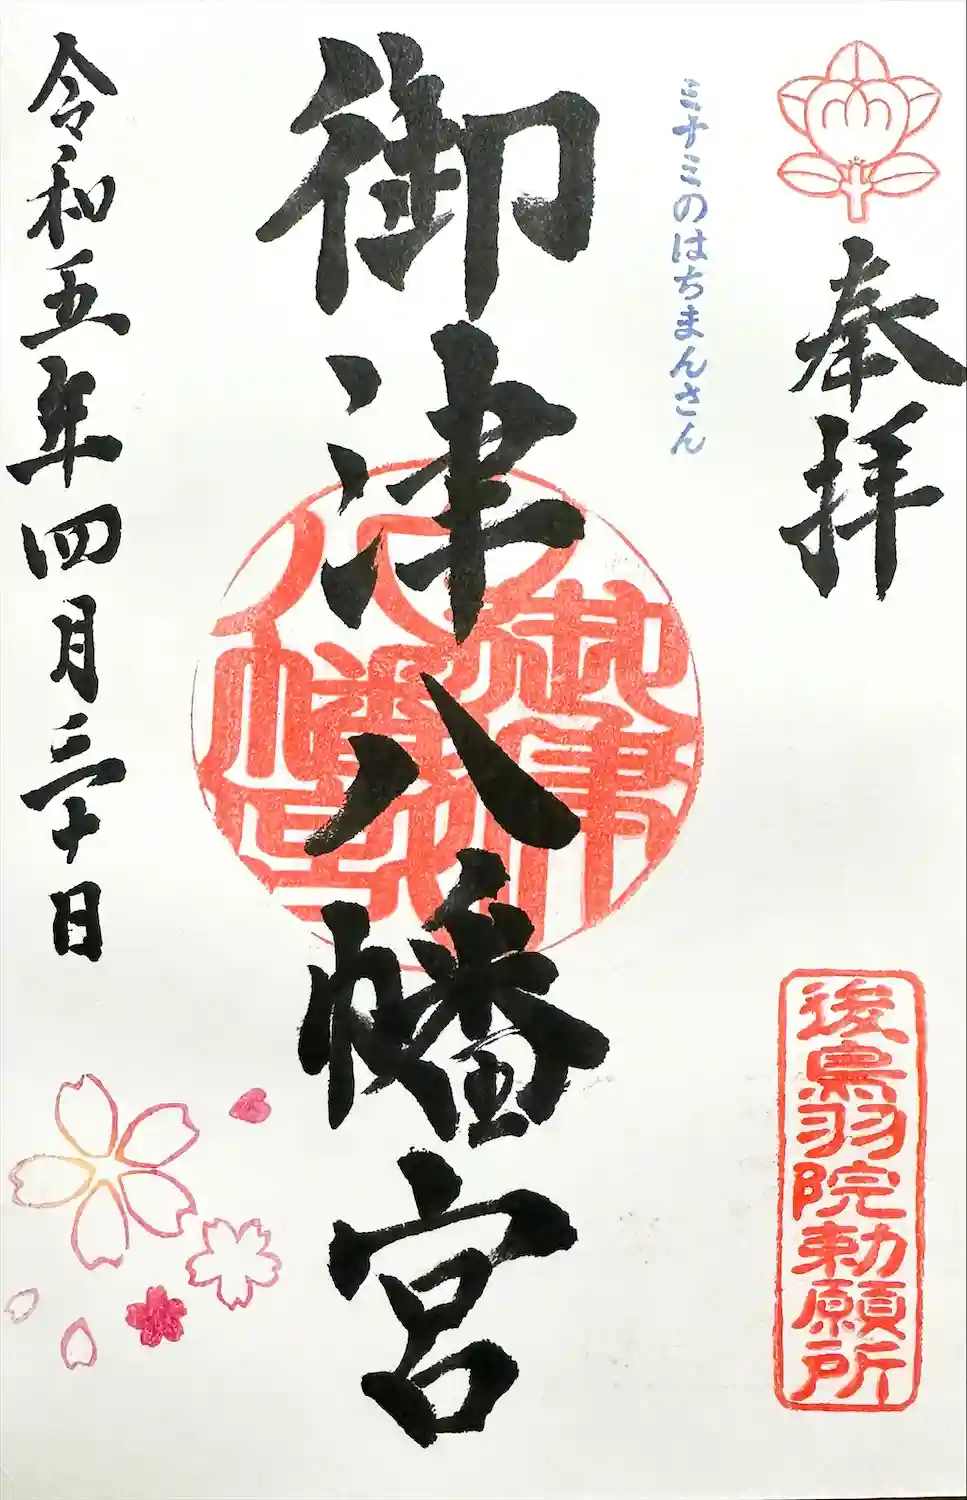 奉拝
後鳥羽院勅願所
ミナミのはちまんさん
御津八幡宮
令和五年四月三十日